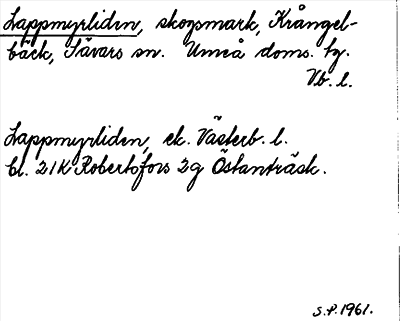 Lappmyrliden, skogsmark, Krångel-
bäck, Sävars sn. Umeå doms. hg.
Vb. l.
Lappmyrliden, ek. Västerb. l.
bl. 21K Robertsfors 2g Östanträsk.
S.P. 1961.